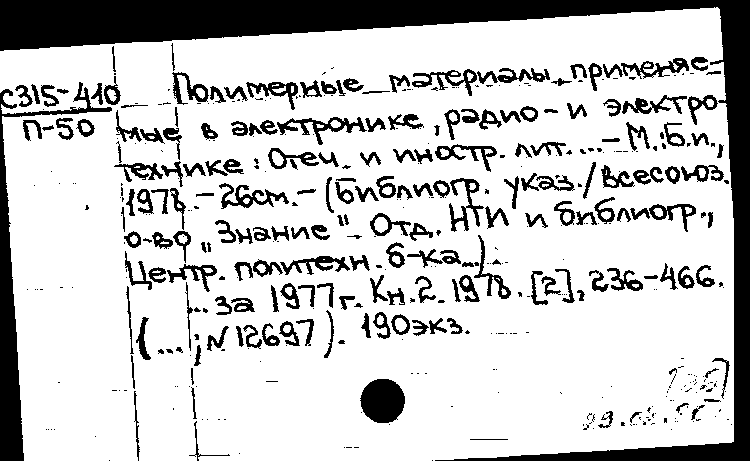 С315-410 Полимерные материалы, применяе-
П-50 мые в электронике, радио- и электро-
технике: Отеч. и иностр. лит. ... - М.: Б.и.,
1978. - 26см. - (Библиогр. указ./Всесоюз.
о-во „Знание". Отд. НТИ и библиогр.,
Центр. политехн. б-ка...).
... за 1977г. Кн. 2. 1978. [2], 236-466.
(...; N 12697). 190экз.